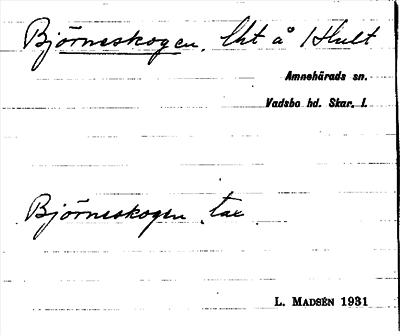 Björneskogen. lht å /Hult
Amnehärads sn.
Vadsbo hd. Skar. l.
Björneskogen, tax
L. MADSÉN 1931